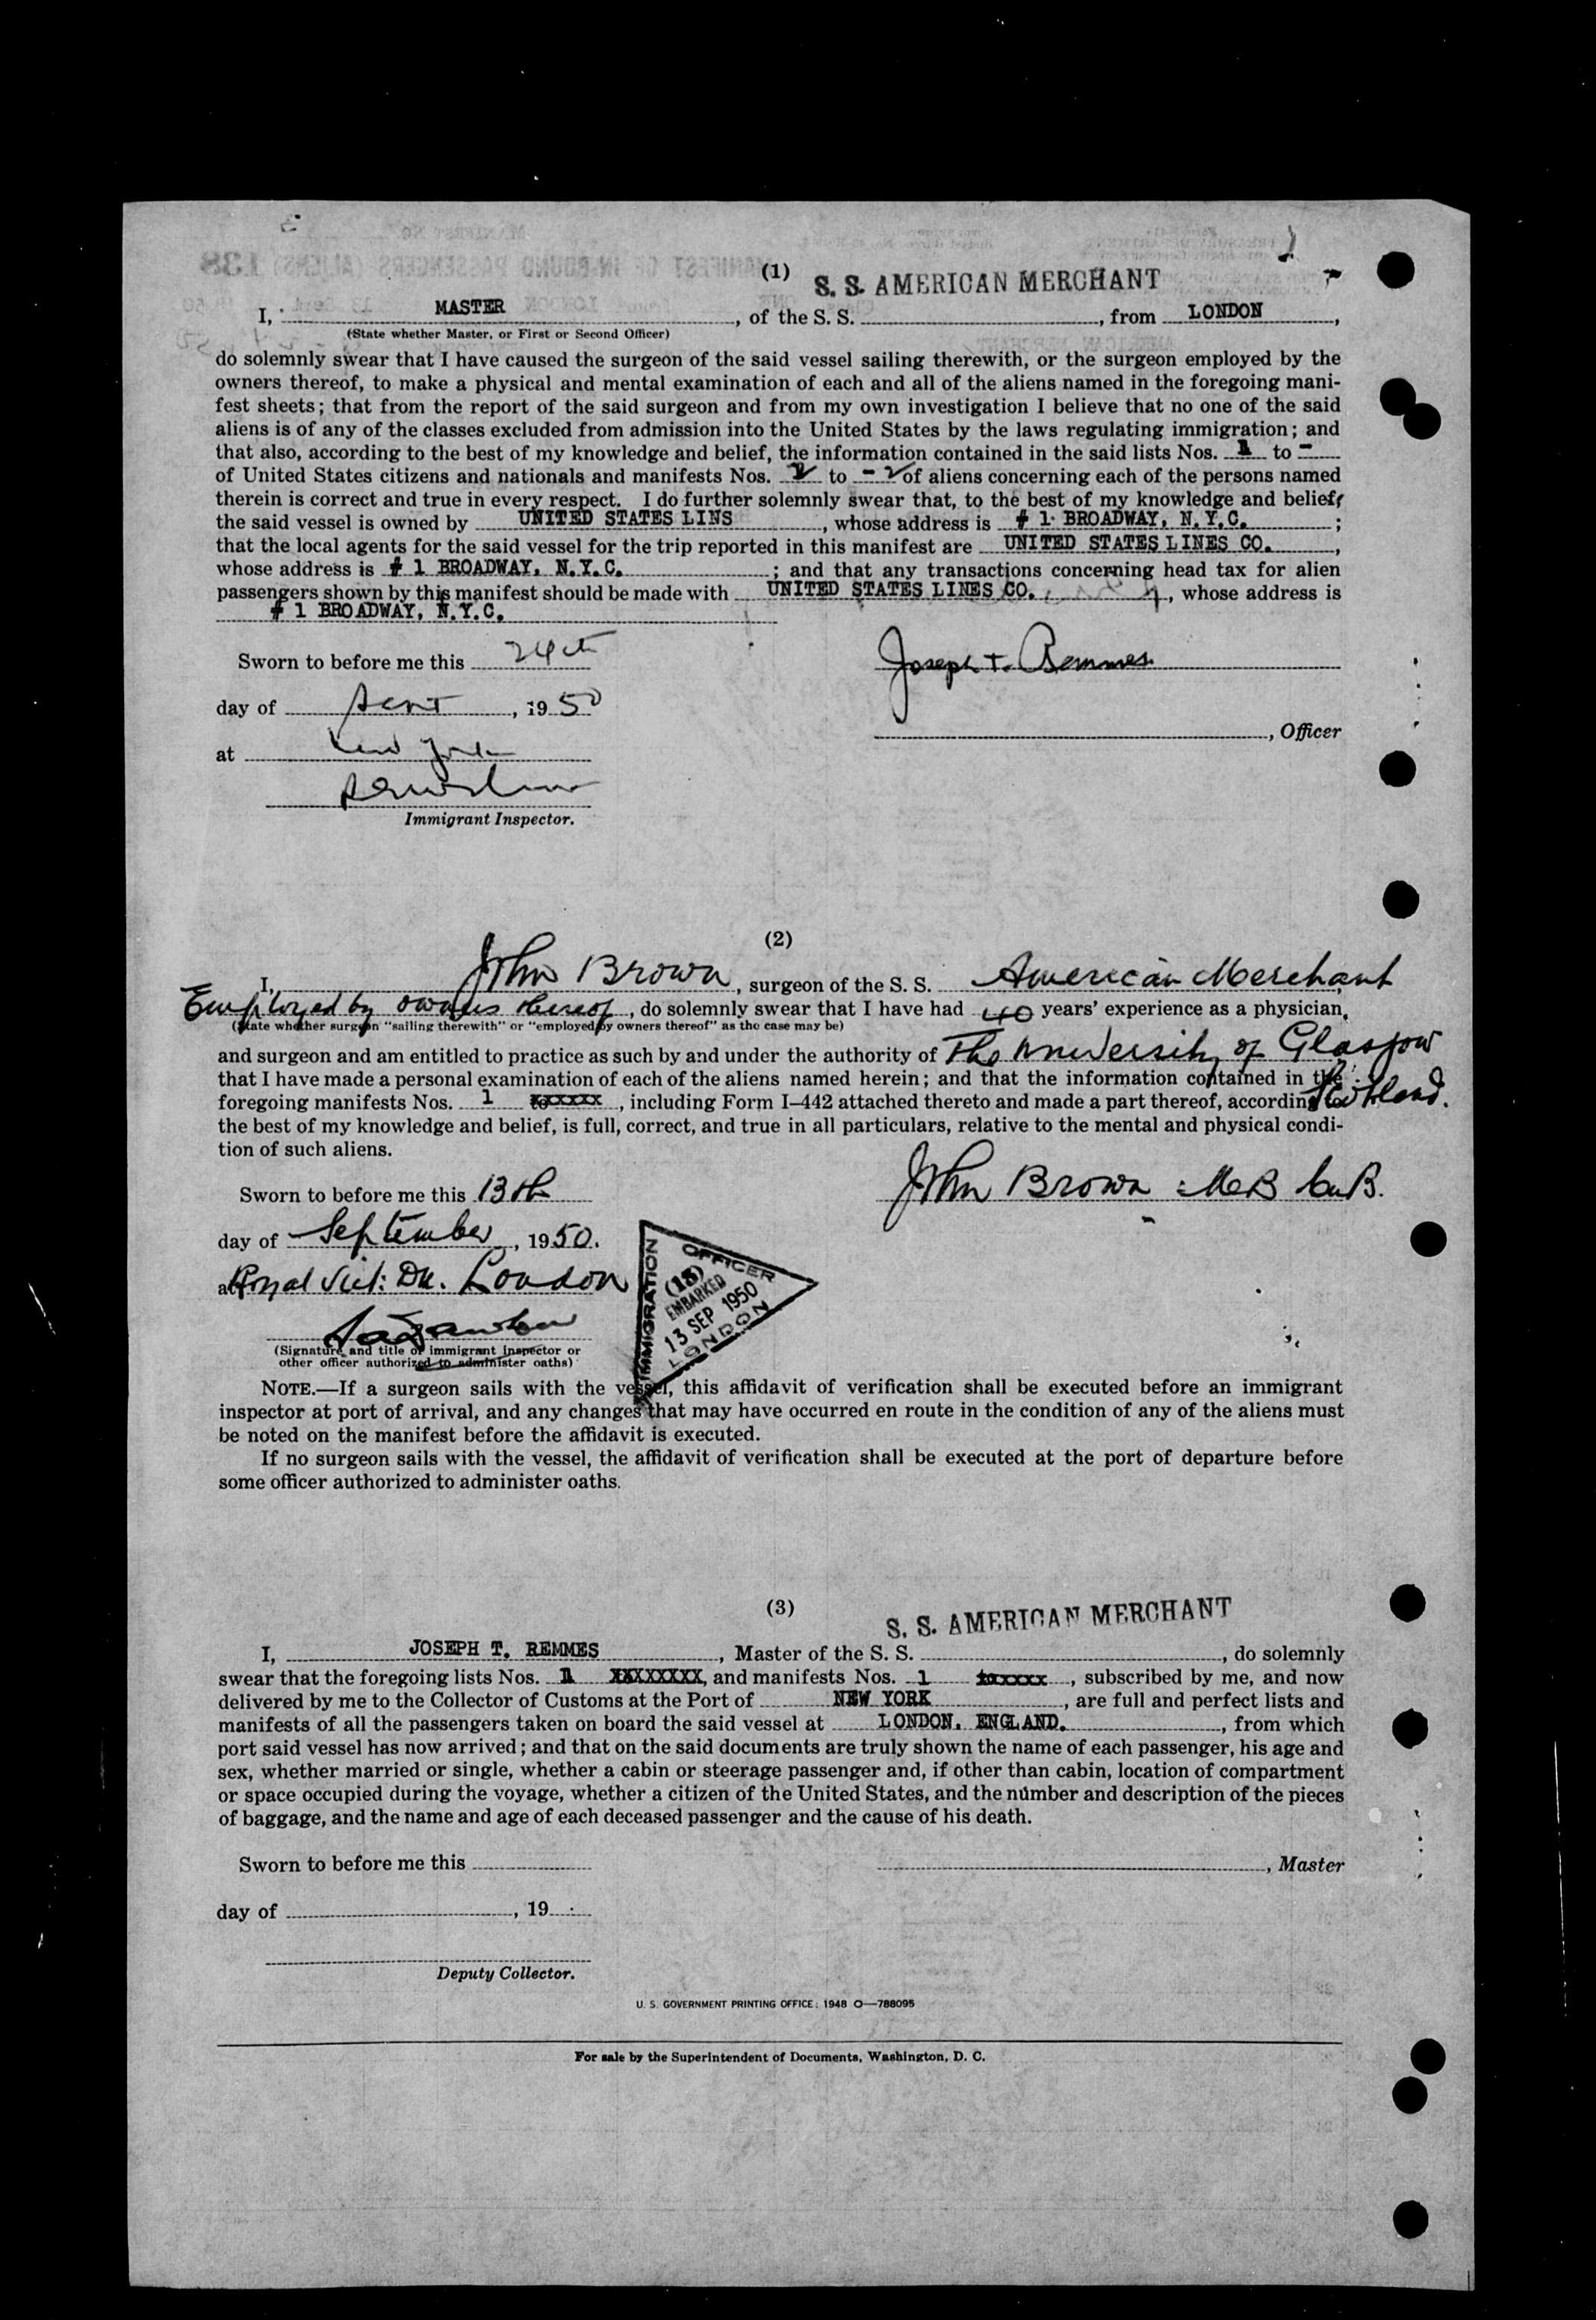 (1)
S. S. AMERICAN MERCHANT
I, MASTER, of the S. S. , from LONDON,
(State whether Master, or First or Second Officer)
do solemnly swear that I have caused the surgeon of the said vessel sailing therewith, or the surgeon employed by the
owners thereof, to make a physical and mental examination of each and all of the aliens named in the foregoing mani-
fest sheets; that from the report of the said surgeon and from my own investigation I believe that no one of the said
aliens is of any of the classes excluded from admission into the United States by the laws regulating immigration; and
that also, according to the best of my knowledge and belief, the information contained in the said lists Nos. 1 to -
of United States citizens and nationals and manifests Nos. 2 to - of aliens concerning each of the persons named
therein is correct and true in every respect. I do further solemnly swear that, to the best of my knowledge and belief,
the said vessel is owned by UNITED STATES LINS, whose address is # 1 BROADWAY, N.Y.C. ;
that the local agents for the said vessel for the trip reported in this manifest are UNITED STATES LINES CO. ,
whose address is # 1 BROADWAY, N.Y.C. ; and that any transactions concerning head tax for alien
passengers shown by this manifest should be made with UNITED STATES LINES CO. , whose address is
# 1 BROADWAY, N.Y.C.
Sworn to before me this 24th
Joseph T. Remmes
day of Sept, 1950
, Officer
at New York
Immigrant Inspector.
(2)
I, John Brown, surgeon of the S. S. American Merchant
Employed by owners thereof, do solemnly swear that I have had 40 years' experience as a physician,
(State whether surgeon "sailing therewith" or "employed by owners thereof" as the case may be)
and surgeon and am entitled to practice as such by and under the authority of The University of Glasgow
that I have made a personal examination of each of the aliens named herein; and that the information contained in the
Scotland.
foregoing manifests Nos. 1 to xxxxxx, including Form I-442 attached thereto and made a part thereof, according to
the best of my knowledge and belief, is full, correct, and true in all particulars, relative to the mental and physical condi-
tion of such aliens.
Sworn to before me this 13th
John Brown M.B. Ch.B.
day of September, 1950.
at Royal Vict: Dk. London
IMMIGRATION OFFICER
(13)
EMBARKED
13 SEP 1950
LONDON
(Signature and title of immigrant inspector or
other officer authorized to administer oaths)
NOTE.—If a surgeon sails with the vessel, this affidavit of verification shall be executed before an immigrant
inspector at port of arrival, and any changes that may have occurred en route in the condition of any of the aliens must
be noted on the manifest before the affidavit is executed.
If no surgeon sails with the vessel, the affidavit of verification shall be executed at the port of departure before
some officer authorized to administer oaths.
(3)
S. S. AMERICAN MERCHANT
I, JOSEPH T. REMMES, Master of the S. S. , do solemnly
swear that the foregoing lists Nos. 1 XXXXXXXX, and manifests Nos. 1 to xxxxx, subscribed by me, and now
delivered by me to the Collector of Customs at the Port of NEW YORK, are full and perfect lists and
manifests of all the passengers taken on board the said vessel at LONDON. ENGLAND. , from which
port said vessel has now arrived; and that on the said documents are truly shown the name of each passenger, his age and
sex, whether married or single, whether a cabin or steerage passenger and, if other than cabin, location of compartment
or space occupied during the voyage, whether a citizen of the United States, and the number and description of the pieces
of baggage, and the name and age of each deceased passenger and the cause of his death.
Sworn to before me this
, Master
day of , 19
Deputy Collector.
U. S. GOVERNMENT PRINTING OFFICE: 1948 O—788095
For sale by the Superintendent of Documents, Washington, D. C.